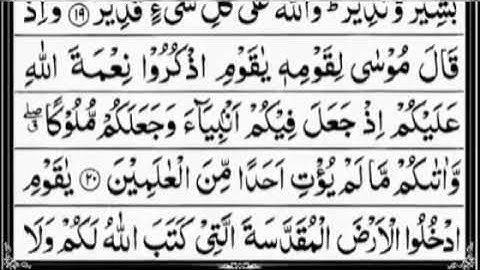 بَشِيۡرٌ وَّنَذِيۡرٌ ؕ وَاللّٰهُ عَلٰى كُلِّ شَىۡءٍ قَدِيۡرٌ ﴿۱۹﴾ وَاِذۡ
قَالَ مُوۡسٰى لِقَوۡمِهٖ يٰقَوۡمِ اذۡكُرُوۡا نِعۡمَةَ اللّٰهِ
عَلَيۡكُمۡ اِذۡ جَعَلَ فِيۡكُمۡ اَنۡۢبِيَآءَ وَجَعَلَكُمۡ مُّلُوۡكًا ۖۗ
وَّاٰتٰٮكُمۡ مَّا لَمۡ يُؤۡتِ اَحَدًا مِّنَ الۡعٰلَمِيۡنَ ﴿۲۰﴾ يٰقَوۡمِ
ادۡخُلُوا الۡاَرۡضَ الۡمُقَدَّسَةَ الَّتِىۡ كَتَبَ اللّٰهُ لَكُمۡ وَلَا